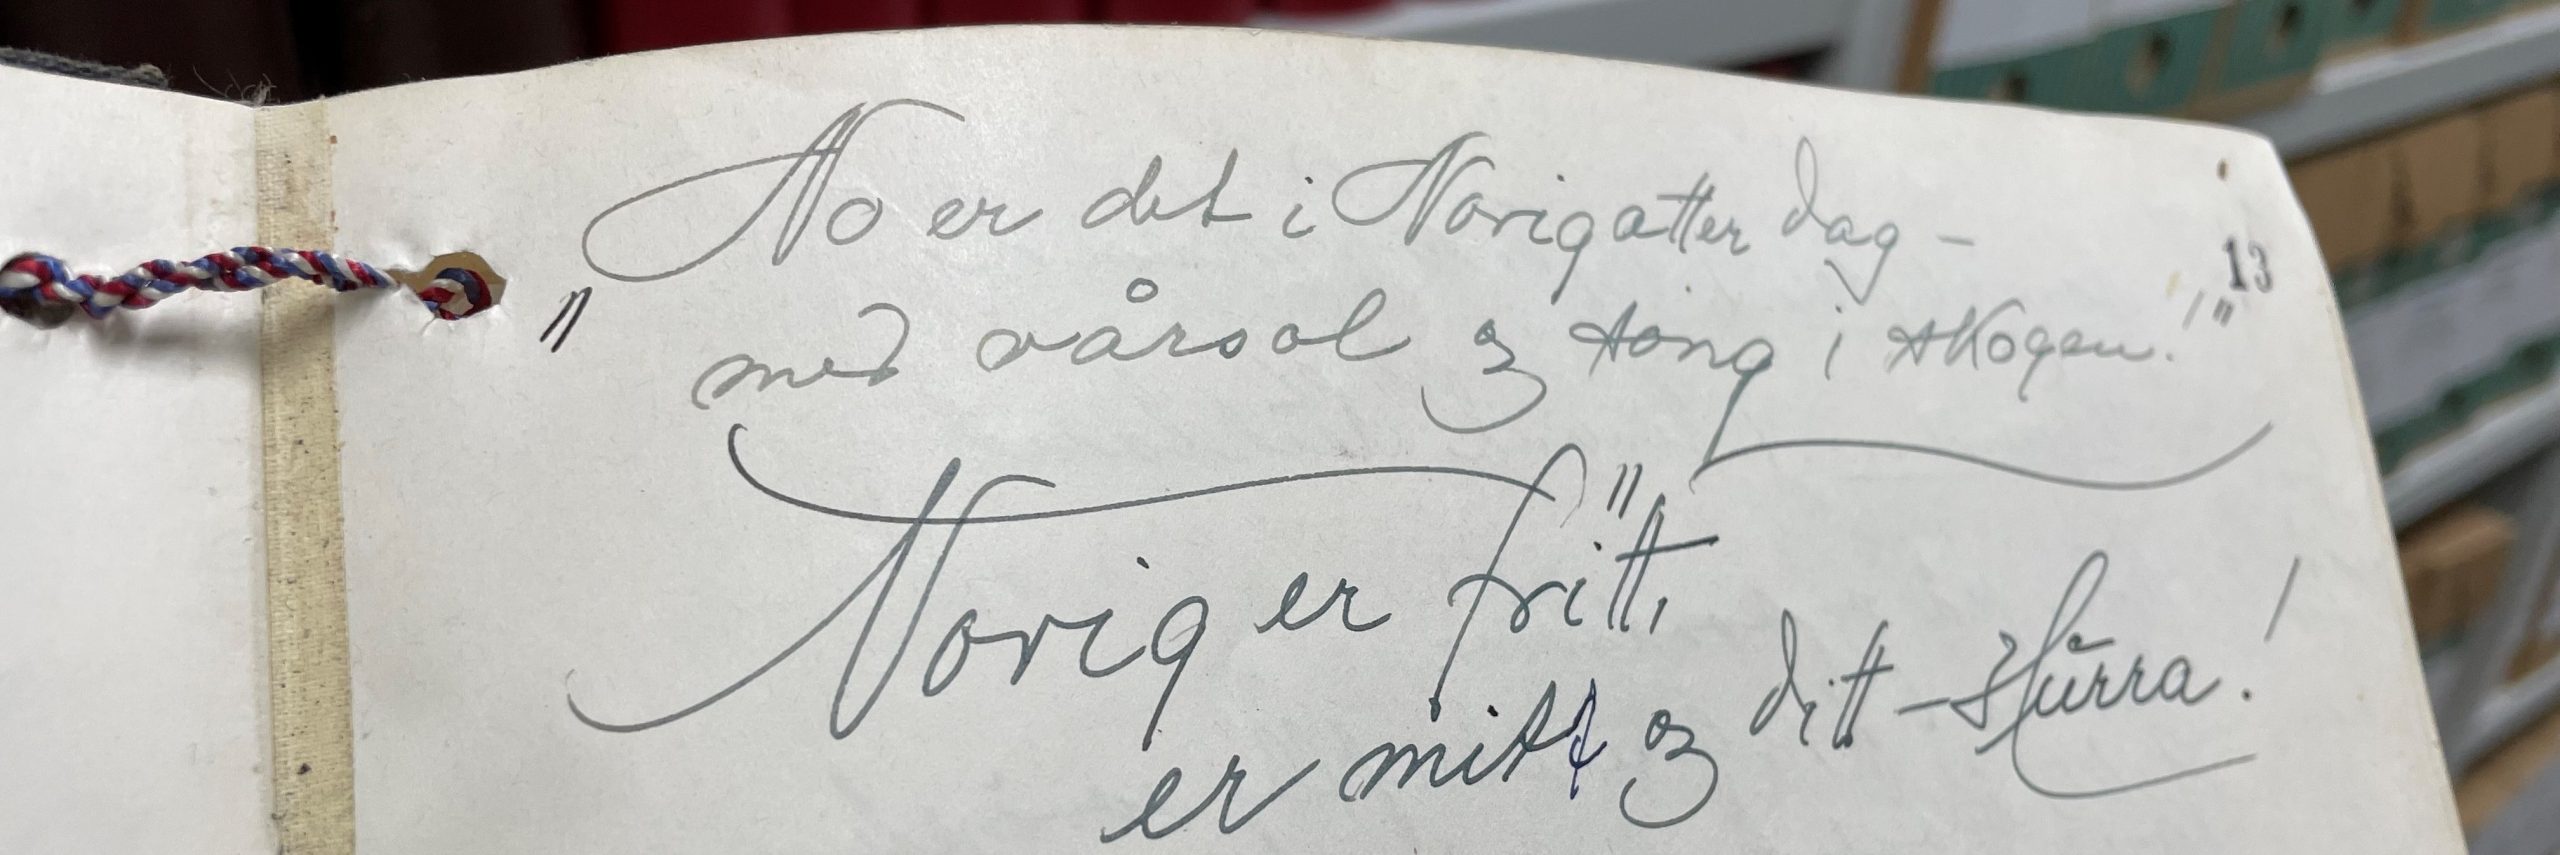 No er det i Norig atter dag –
13
" med vårsol og song i skogen!"
" Norig er fritt,
er mitt og ditt – Hurra!